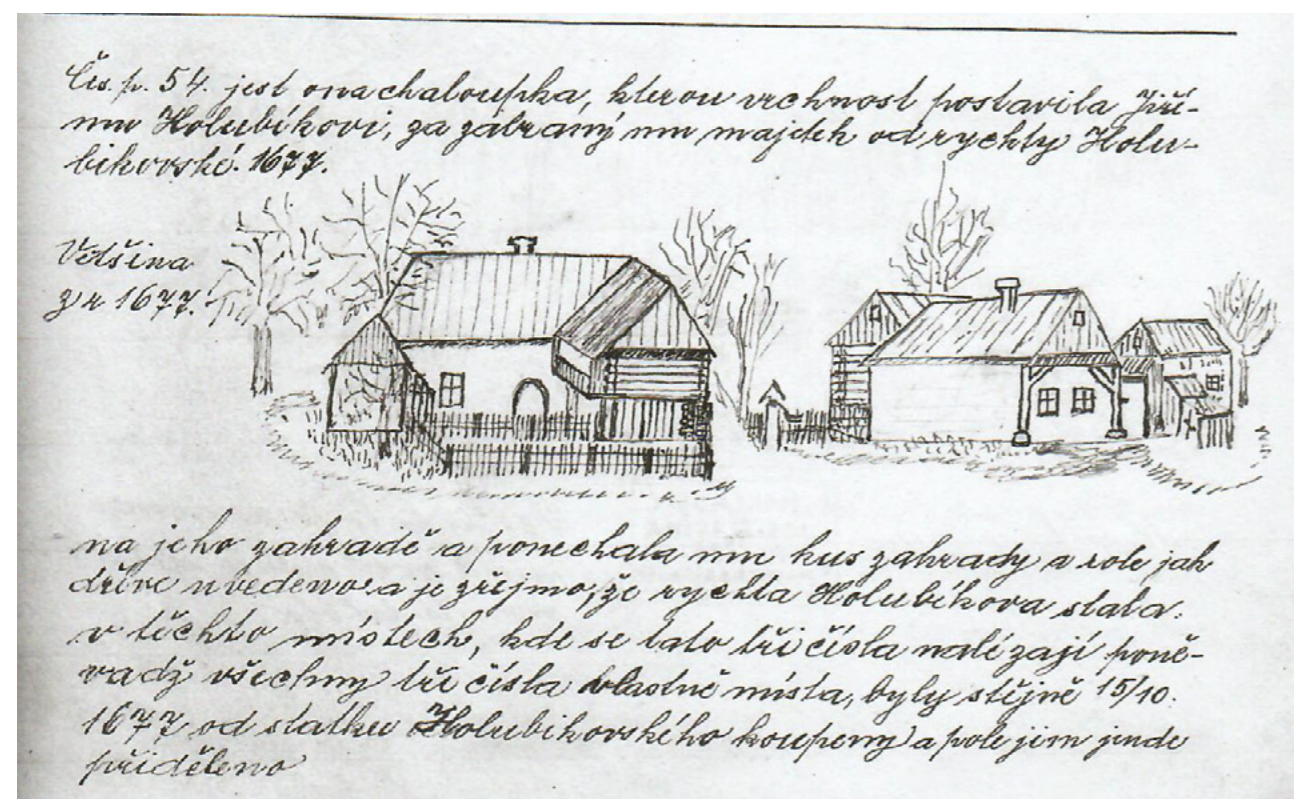 Čís. p. 54. jest ona chaloupka, kterou vrchnost postavila Jiří-
mu Holubíkovi, za zabraný mu majetek od rychty Holu-
bikovské. 1677.
Vetšina
z r. 1677.
na jeho zahradě a ponechala mu kus zahrady a role jak
dříve uvedeno a je zřejmo, že rychta Holubíkova stala
v těchto místech, kde se tato tři čísla nalézají poně-
vadž všechny tři čísla vlastně místa, byly stejně 15/10.
1677 od statku Holubikovského koupeny a pole jim jinde
přiděleno